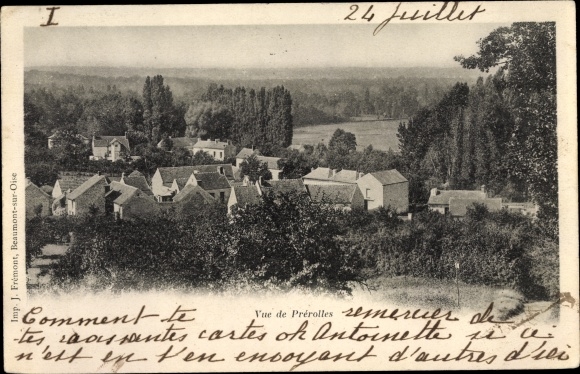 I
24 Juillet
Imp. J. Frémont, Beaumont-sur-Oise
Vue de Prérolles
Comment te remercier de
tes ravissantes cartes oh Antoinette si ce
n'est en t'en envoyant d'autres d'ici